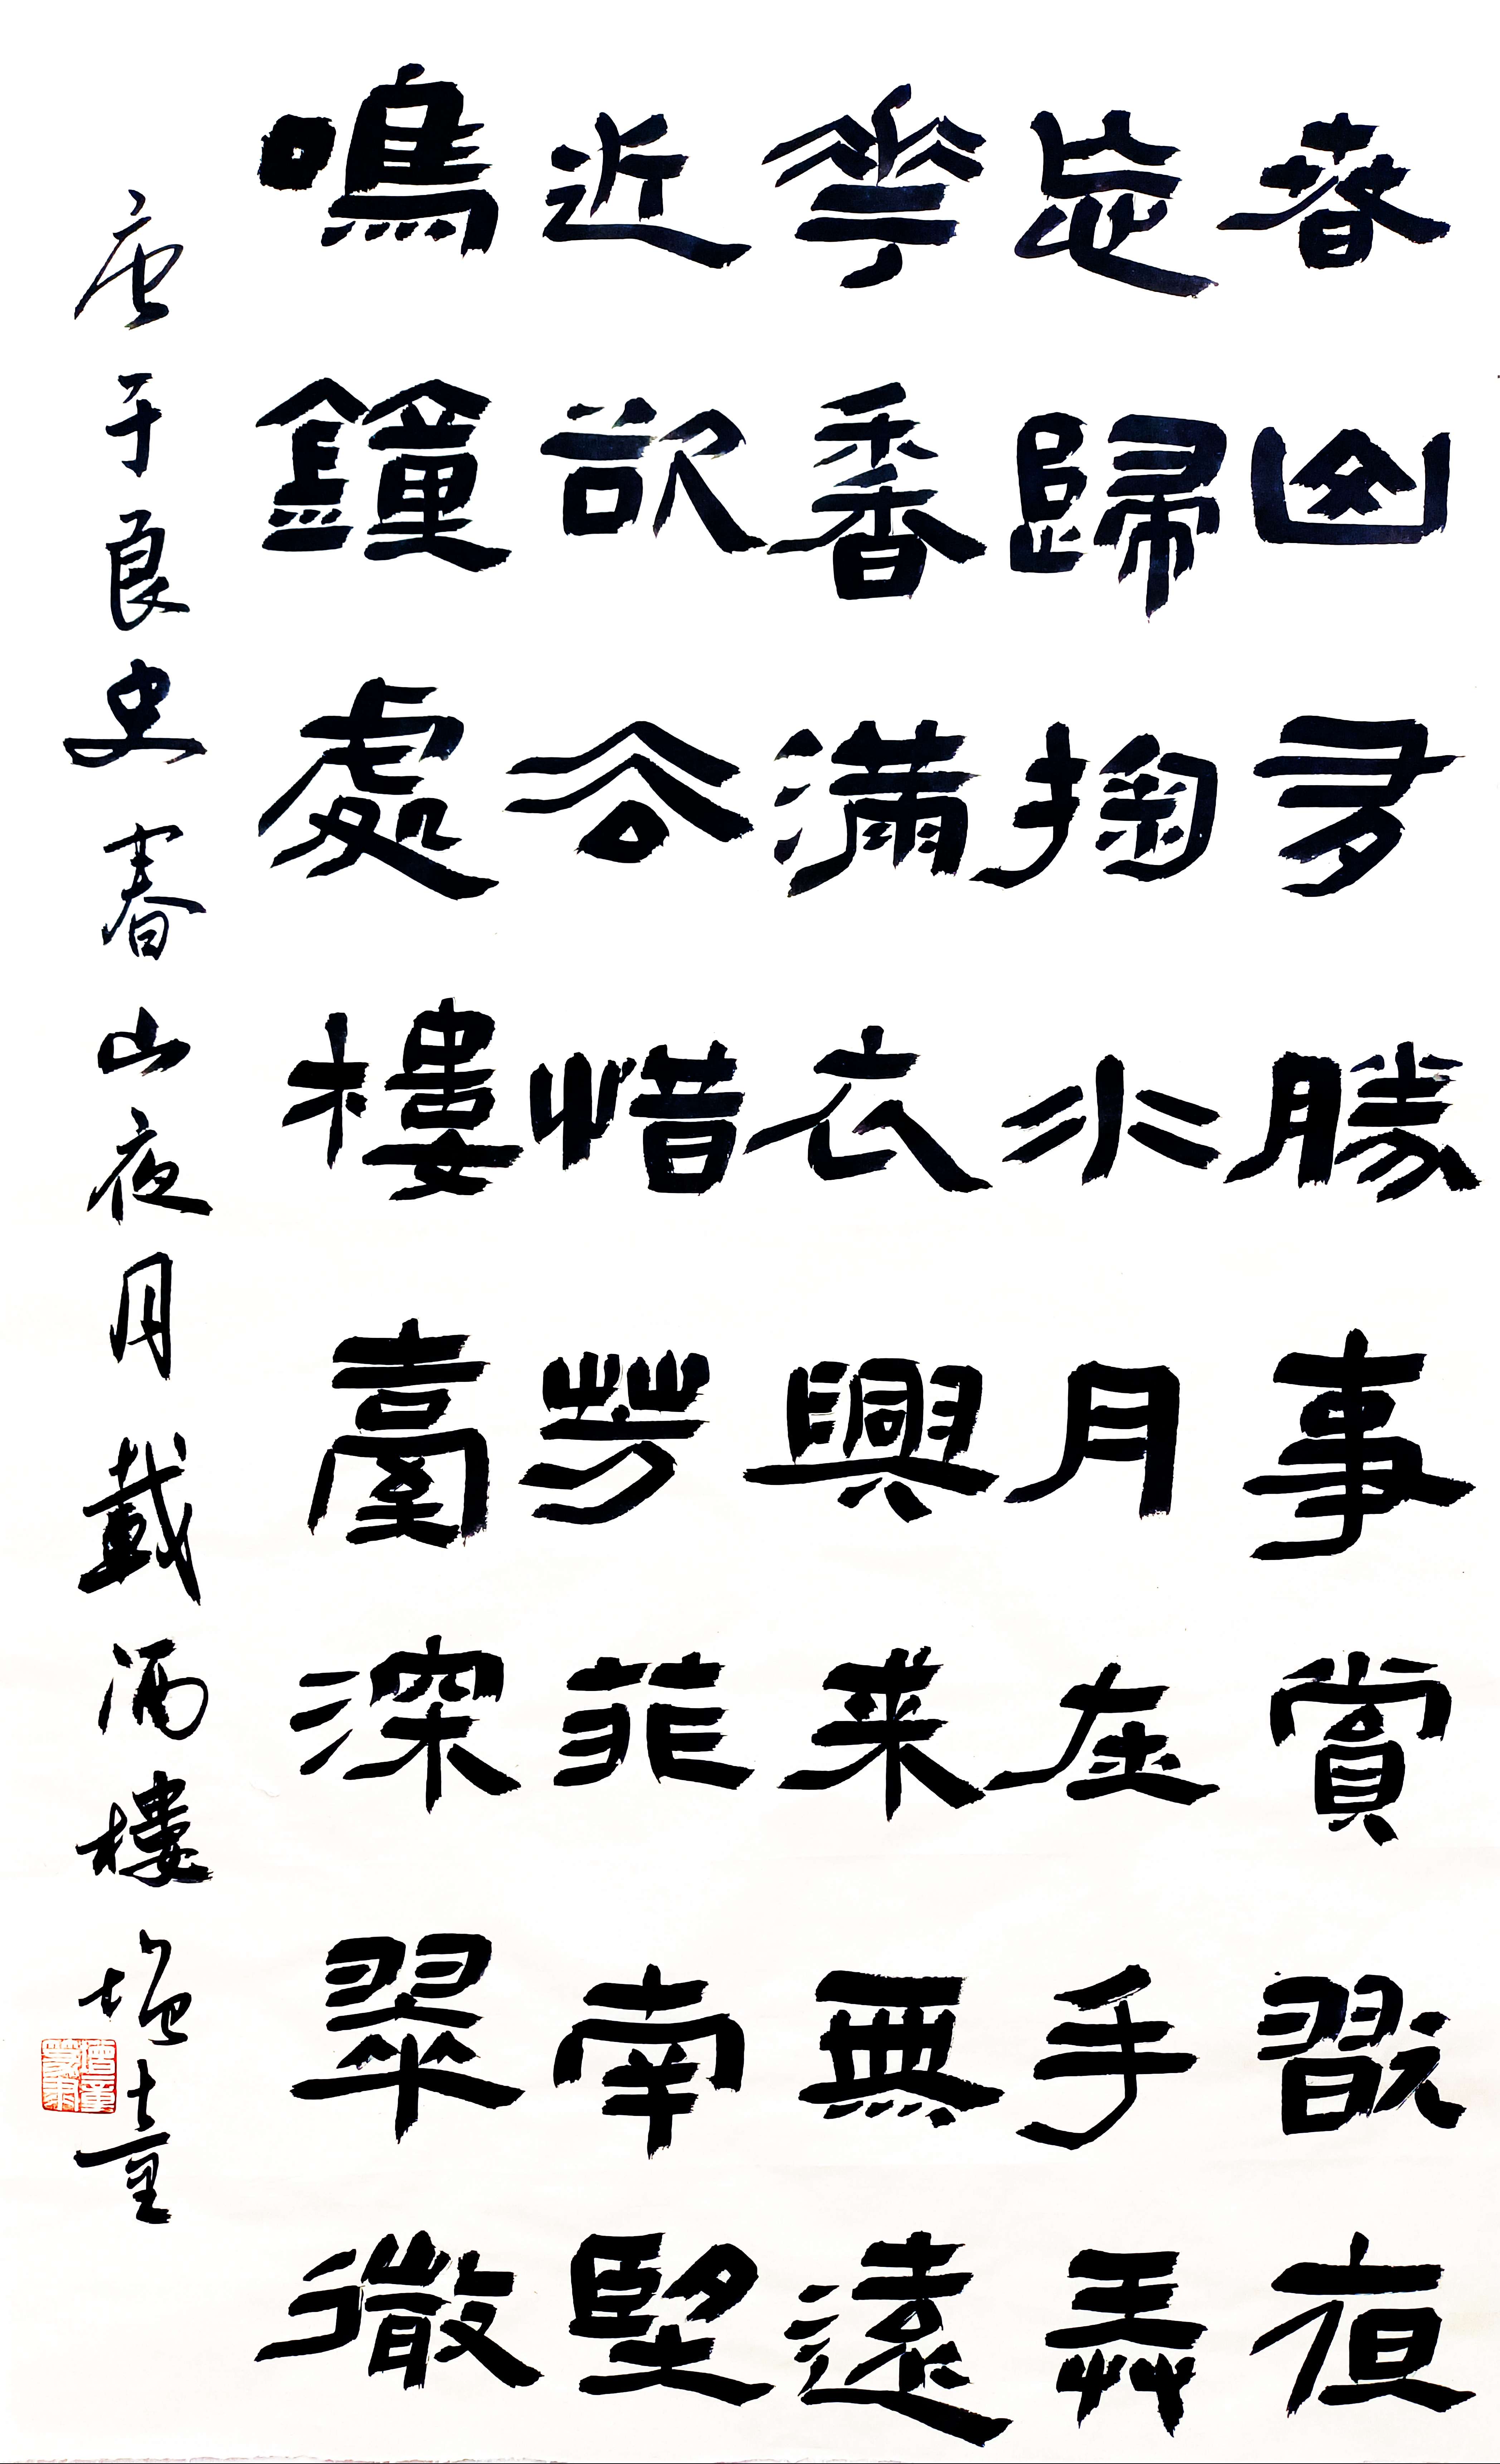 春山多勝事賞翫夜
忘歸掬水月在手弄
花香滿衣興来無遠
近欲去惜芳菲南望
鳴鐘處樓臺深翠微
唐于良史春山夜月載酒樓